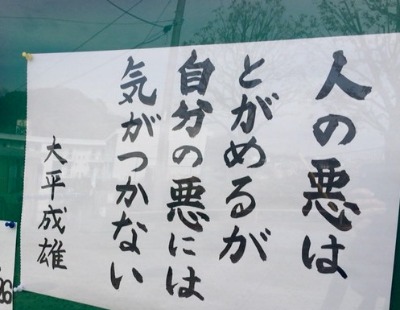 人の悪は
とがめるが
自分の悪には
気がつかない
大平成雄
26